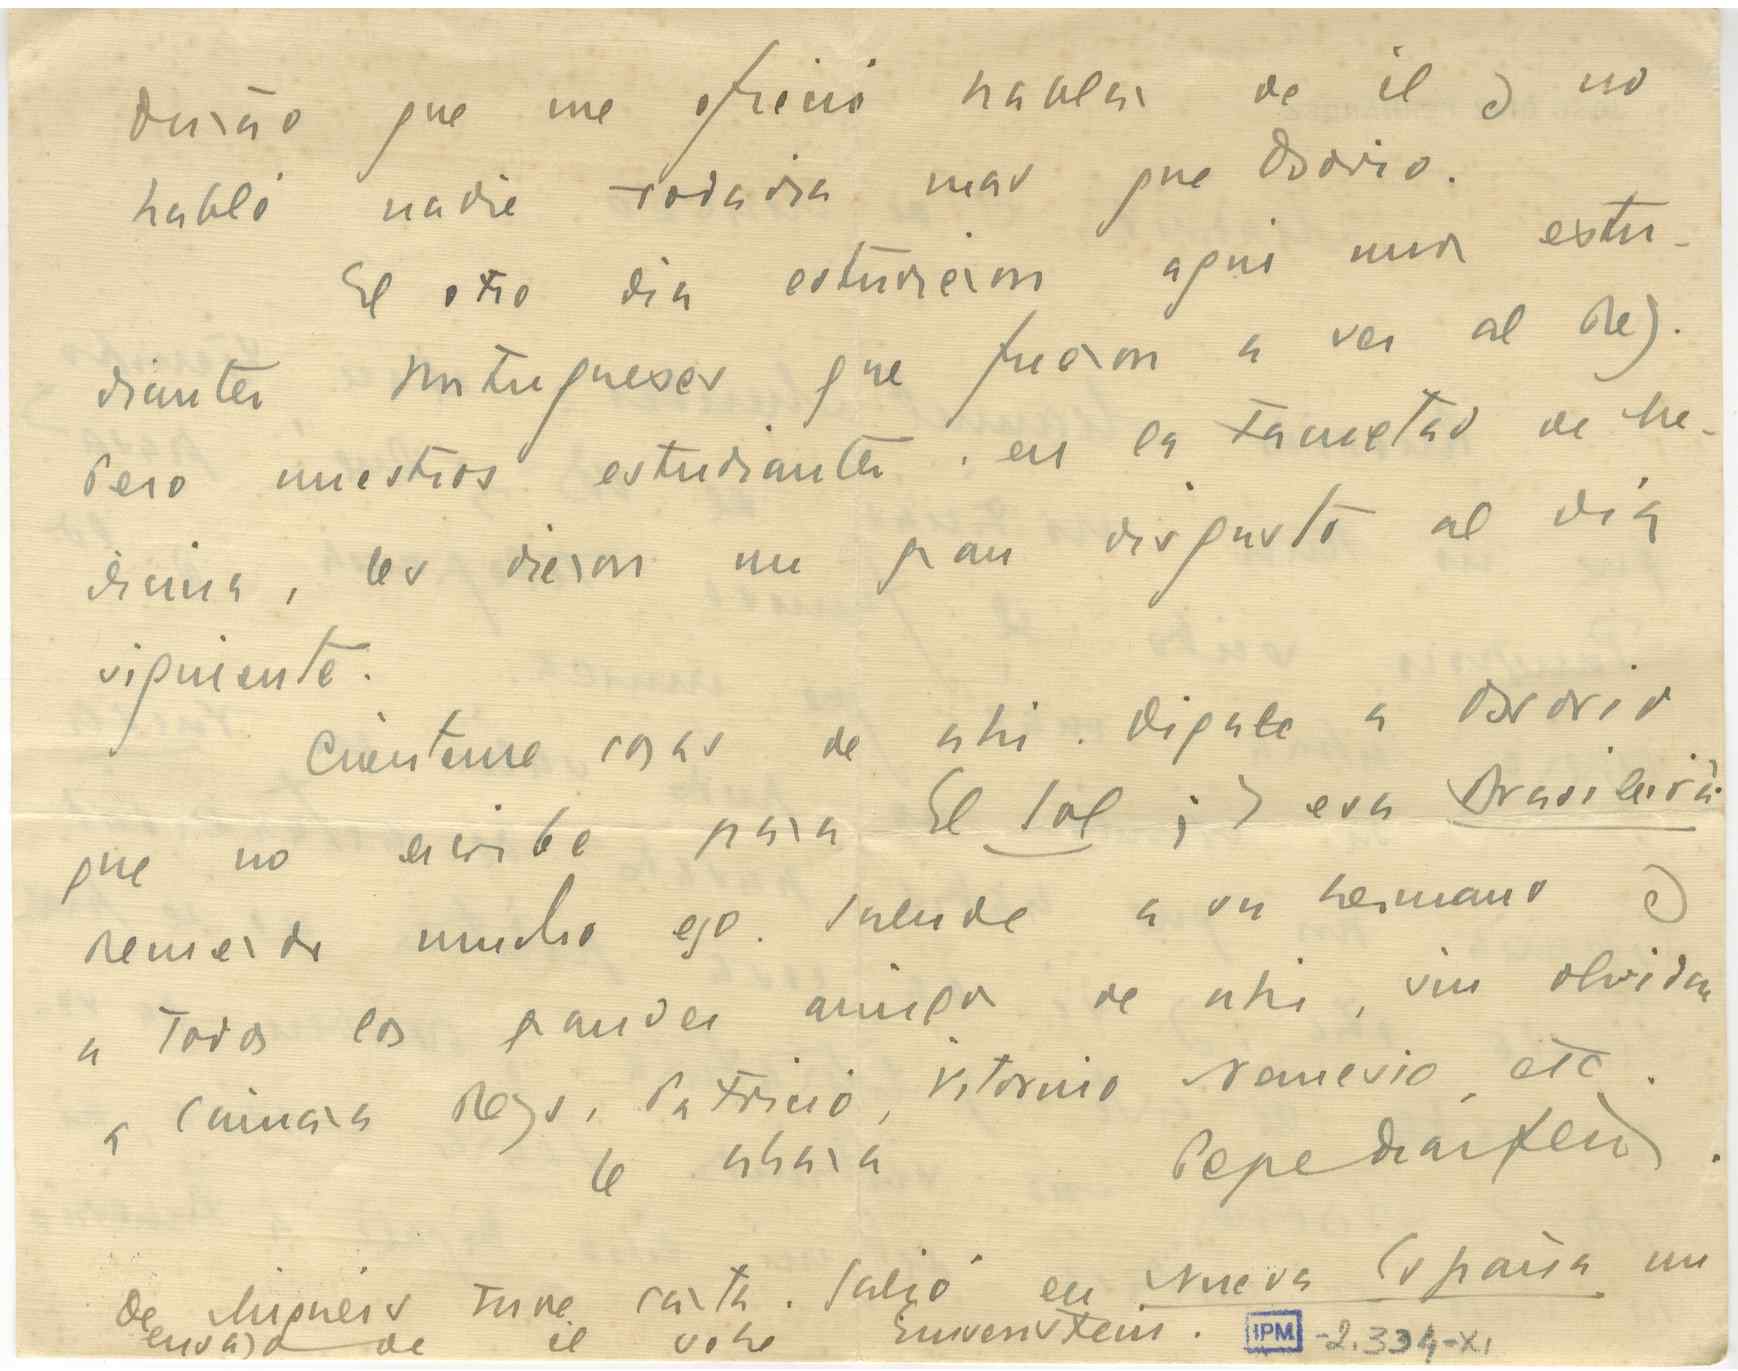 Durão que me ofreció hablar de él y no
habló nadie todavia mas que Osorio.
El otro dia estuvieron aqui unos estu-
diantes portugueses que fueron a ver al Rey.
Pero nuestros estudiantes, en la Facultad de Me-
dicina, les dieron un gran disgusto al día
siguiente.
Cuénteme cosas de ahi. Digale a Osorio
que no escribe para El Sol; y esa Brasileira
Recuerdo mucho eso. Salude a su hermano y
a todos los grandes amigos de ahi, sin olvidar
a Camara Reys, Patricio, Vitorino Nemesio, etc.
le abraza Pepe Diaz Fern
De Migueis tuve carta. Salió en Nueva España un
ensayo de él sobre Einsenstein. IPM -2.334-XI